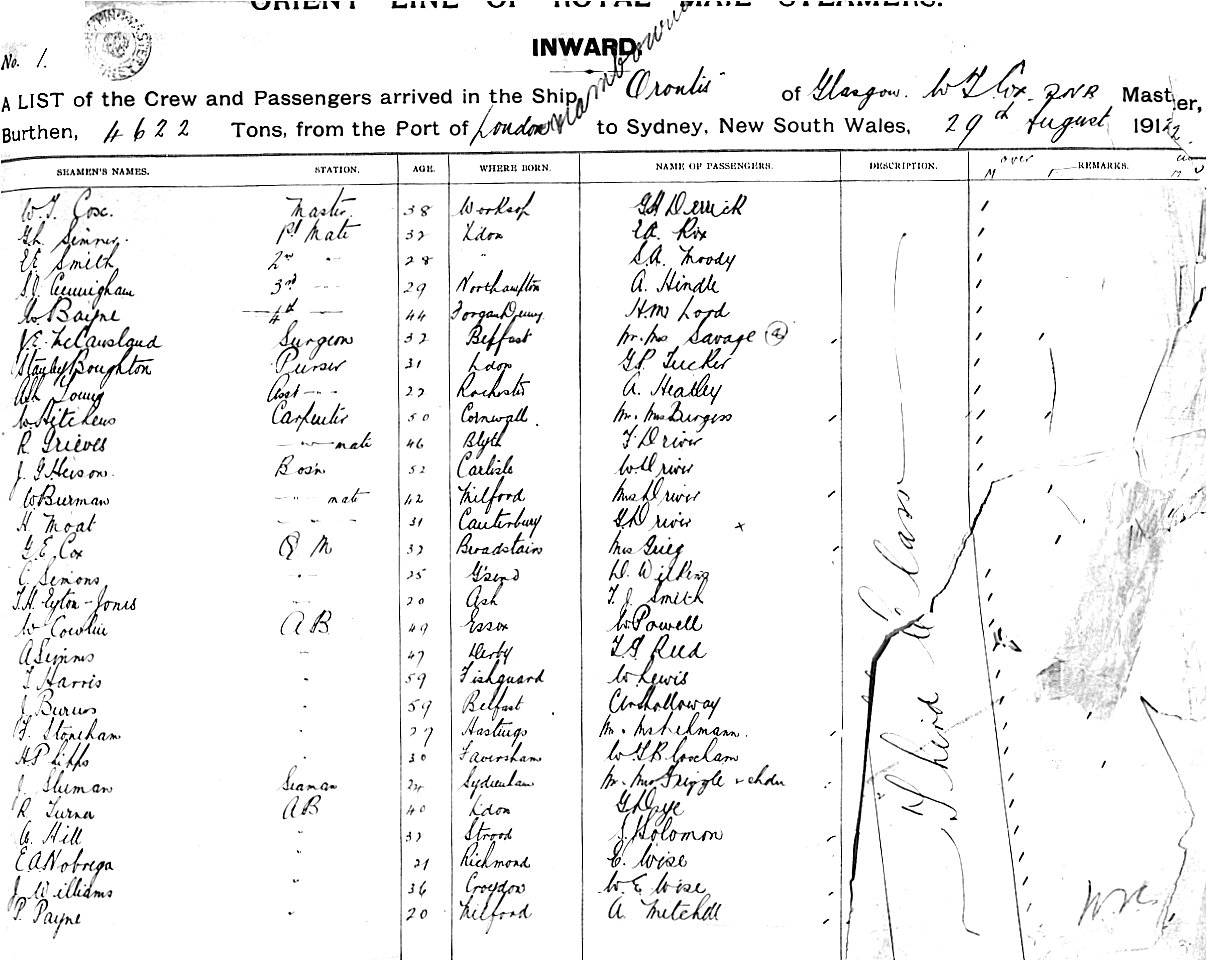 ORIENT LINE OF ROYAL MAIL STEAMERS.
INWARD.
No. 1.
A LIST of the Crew and Passengers arrived in the Ship "Orontes" of Glasgow. W J Cox. RNR Master,
Burthen, 4622 Tons, from the Port of London via Melbourne to Sydney, New South Wales, 29th August 1912
SEAMEN'S NAMES. STATION. AGE. WHERE BORN. NAME OF PASSENGERS. DESCRIPTION. M over F REMARKS.
W.J. Cox. Master. 38 Worksop G H Derrick
G.h. Simner. 1st Mate 32 Ldon E A. Rix
E E Smith. 2nd " 28 " S. A. Moody
S.J. Cunnigham 3rd 29 Northampton A. Hindle
W. Bayne 4th 44 Forgan Denny H. M. Lord
V.E. McCausland Surgeon 32 Belfast Mr. Mrs Savage
Stanley Boughton Purser 31 Ldon G.P. Tucker
Ash Young Asst 22 Rochester A. Heatley
W. Hitchens Carpenter 50 Cornwall. Mr. Mrs Burgess
R. Grieves " mate 46 Blyth F Driver
J. G Heison. Bosn 52 Carlisle W Driver
W Burman " mate 42 Milford Mrs Driver
H. Moat " 31 Canterbury G. Driver x
G. E. Cox Q M 32 Broadstairs Mrs Grieg
C. Simons " 25 G'send D. Wilkins
T.H. Eyton-Jones 20 Ash T. J. Smith
W Cowlin A B 49 Essex W Powell
A Simms " 47 Derby T. G Reed
T Harris " 59 Fishguard W Lewis
J Burns " 59 Belfast Holloway
F. Stoneham " 27 Hastings Mr. Mrs
H Phipps " 30 Faversham W G B
J. Sluman Seaman 24 Sydenham Mr. Mrs Grizzle & chdn
R. Turner A B 40 Ldon G Dye
G. Hill " 32 Strood J. Solomon
E A Nobrega " 21 Richmond C. Wise
J. Williams " 36 Croydon W. E. Wise
P. Payne " 20 Milford A. Mitchell
Third Class